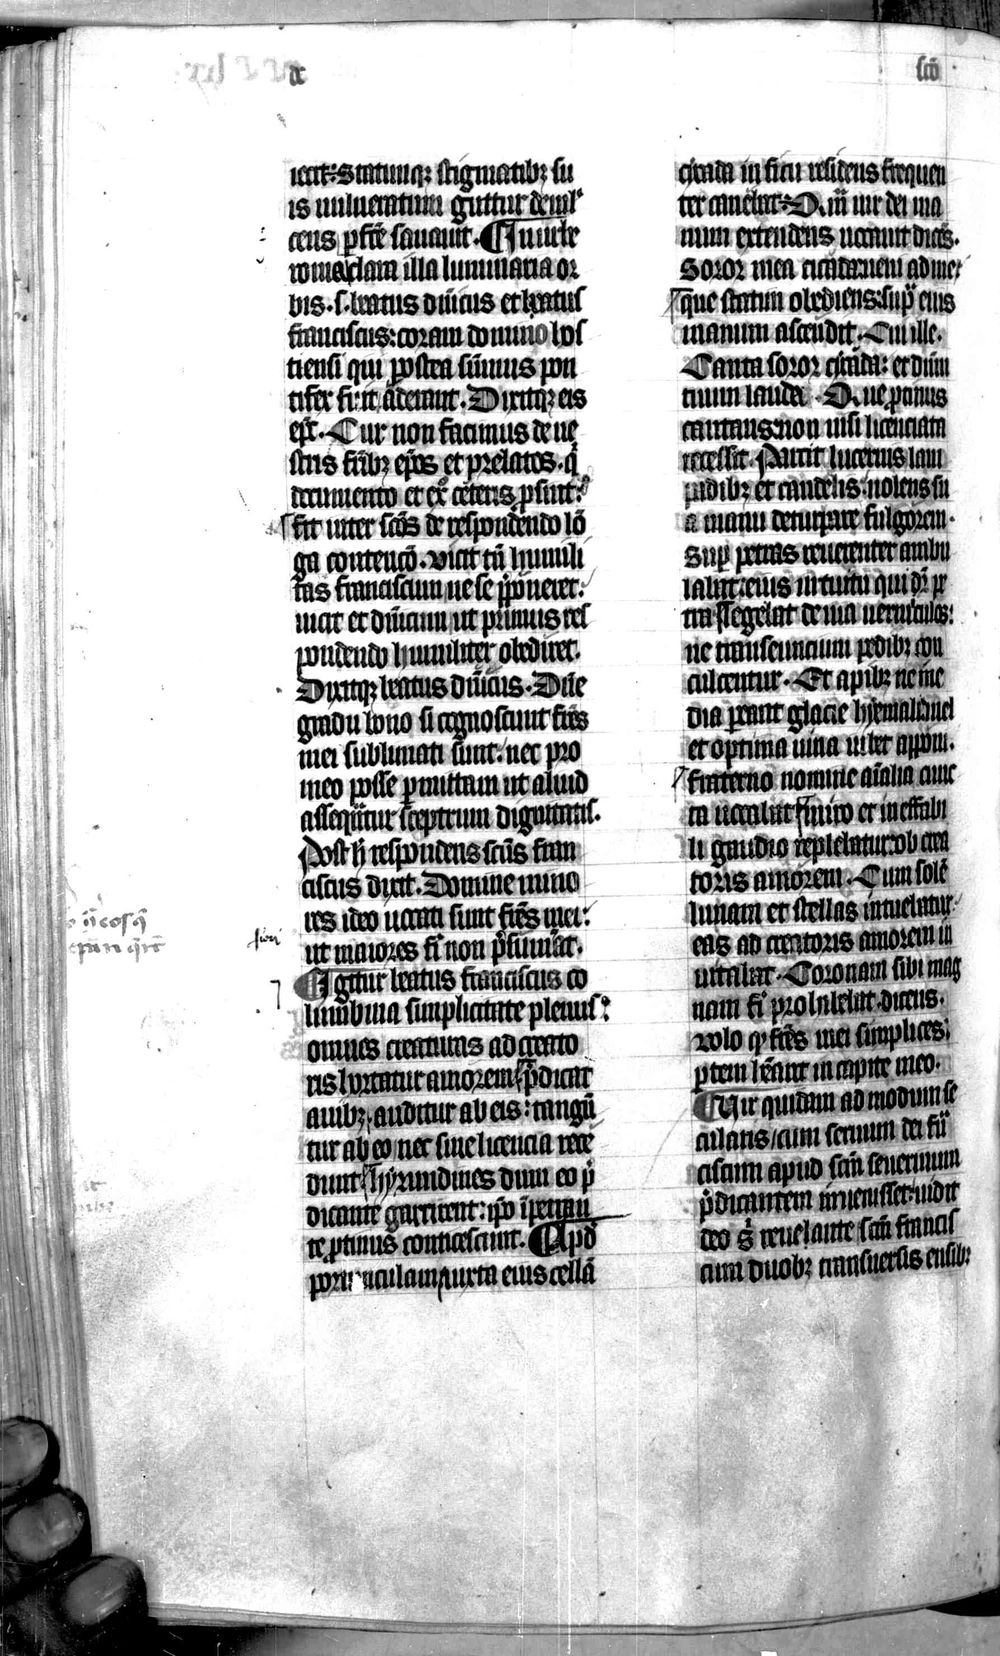 de
scō
iecit: Statimqꝫ stigmatibꝫ su
is uulneratum guttur demul
cens ꝑfcē sanauit. Cum
clara illa luminaria or
bis. s. beatus dn̄icus et beatus
franciscus: coram domino hos
tiensi qui postea sūmus pon
tifex fuit aderant. Dixitqꝫ eis
ep̄c. Cur non facimus de ue
stris fr̄ibꝫ ep̄os et prelatos. qͥ
documento et exº ceteris ꝓsint:
fit inter scōs de respondendo lō
ga contencō. vicit tn̄ humili
tas franciscum ne se p̄poneret:
uicit et dn̄icum ut primus res
pondendo humiliter obediret.
Dixitqꝫ beatus dn̄icus. Dn̄e
gradu bono si cognoscunt fr̄es
mei sublimati sunt: nec pro
meo posse ꝑmittam ut aliud
assequātur sceptrum dignitatis.
Post h̄ respondens scūs fran
ciscus dixit. Domine mino
res ideo uocati sunt fr̄es mei:
ut maiores fiͥ non p̄sumāt.
Igitur beatus franciscus co
lumbina simplicitate plenus:
omnes creaturas ad creato
ris hortatur amorem p̄dicat
auibꝫ, auditur ab eis: tangūt
tur ab eo nec sine licencia rece
dunt hyrundines dum eo p̄
dicante garrirent: ip̄o īperan
te ꝓtinus conticescunt. Apd̄
porciunculam iuxta eius cellā
cicada in ficu residens frequen
ter canebat: Quā uir dei ma
num extendens uocauit dicēs.
Soror mea cicada: ueni ad me:
que statim obediens: suꝑ eius
manum ascendit. Cui ille.
Canta soror cicada: et dūm
tuum lauda. Que ꝓtinus
cantans: non nisi licenciata
recessit. Parcit lucernis lam
padibꝫ et candelis: nolens su
a manu deturpare fulgorem.
Suꝑ petras reuerenter ambu
labat: eius intuitu qui dr̄ pe
tra legebat de uia uermiculos:
ne transeuncium pedibꝫ con
culcentur. Et apibꝫ ne īne
dia pereant glacie hyemali: mel
et optima uina iubet apponi.
fraterno nomine aīalia cunc
ta uocabat miro et ineffabi
li gaudio replebatur: ob crea
toris amorem. Cum solē
lunam et stellas intuebatur
eas ad creatoris amorem in
uitabat. Coronam sibi mag
nam fiͥ prohibebat. dicens.
volo qꝫ fr̄es mei simplices:
ꝑtem habeant in capite meo.
Uir quidam ad modum se
cularis, cum seruum dei frā
ciscum apud scm̄ seuerinum
p̄dicantem inuenisset: uidit
deo sͥ reuelante scm̄ francis
cum duobꝫ transuersis ensibꝫ